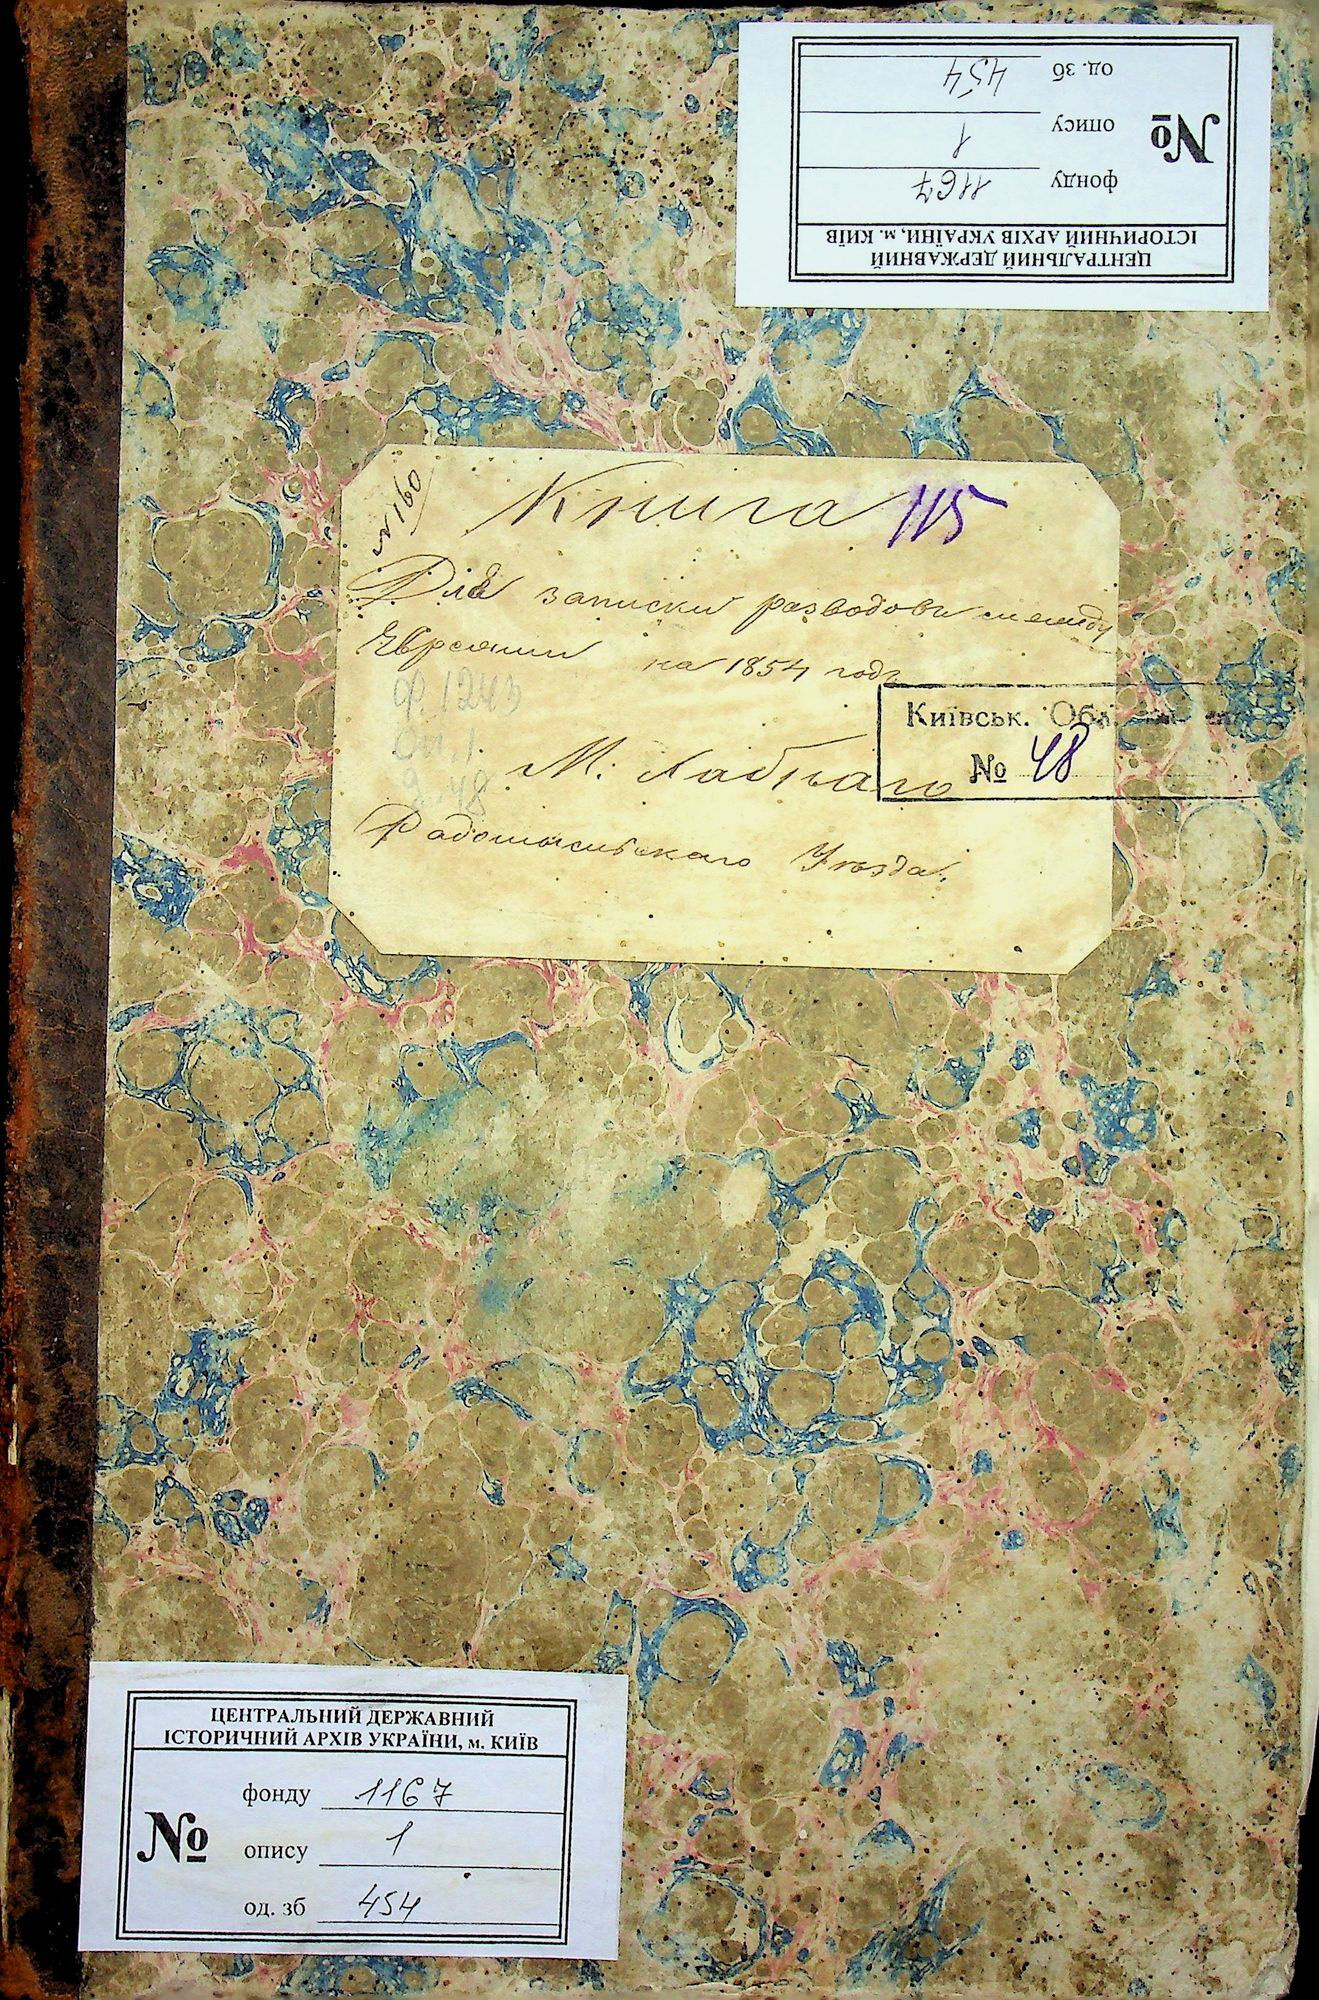 ЦЕНТРАЛЬНИЙ ДЕРЖАВНИЙ
ІСТОРИЧНИЙ АРХІВ УКРАЇНИ, м. КИЇВ
№
фонду 1167
опису 1
од. зб 454
№ 160
Книга 115
Для записки разводовъ между
Евреями на 1854 годъ
ф. 1243
оп. 1
д. 48
Київськ.
№ 48
М. Хабнаго
Радомысльскаго Уѣзда.
ЦЕНТРАЛЬНИЙ ДЕРЖАВНИЙ
ІСТОРИЧНИЙ АРХІВ УКРАЇНИ, м. КИЇВ
№
фонду 1167
опису 1
од. зб 454